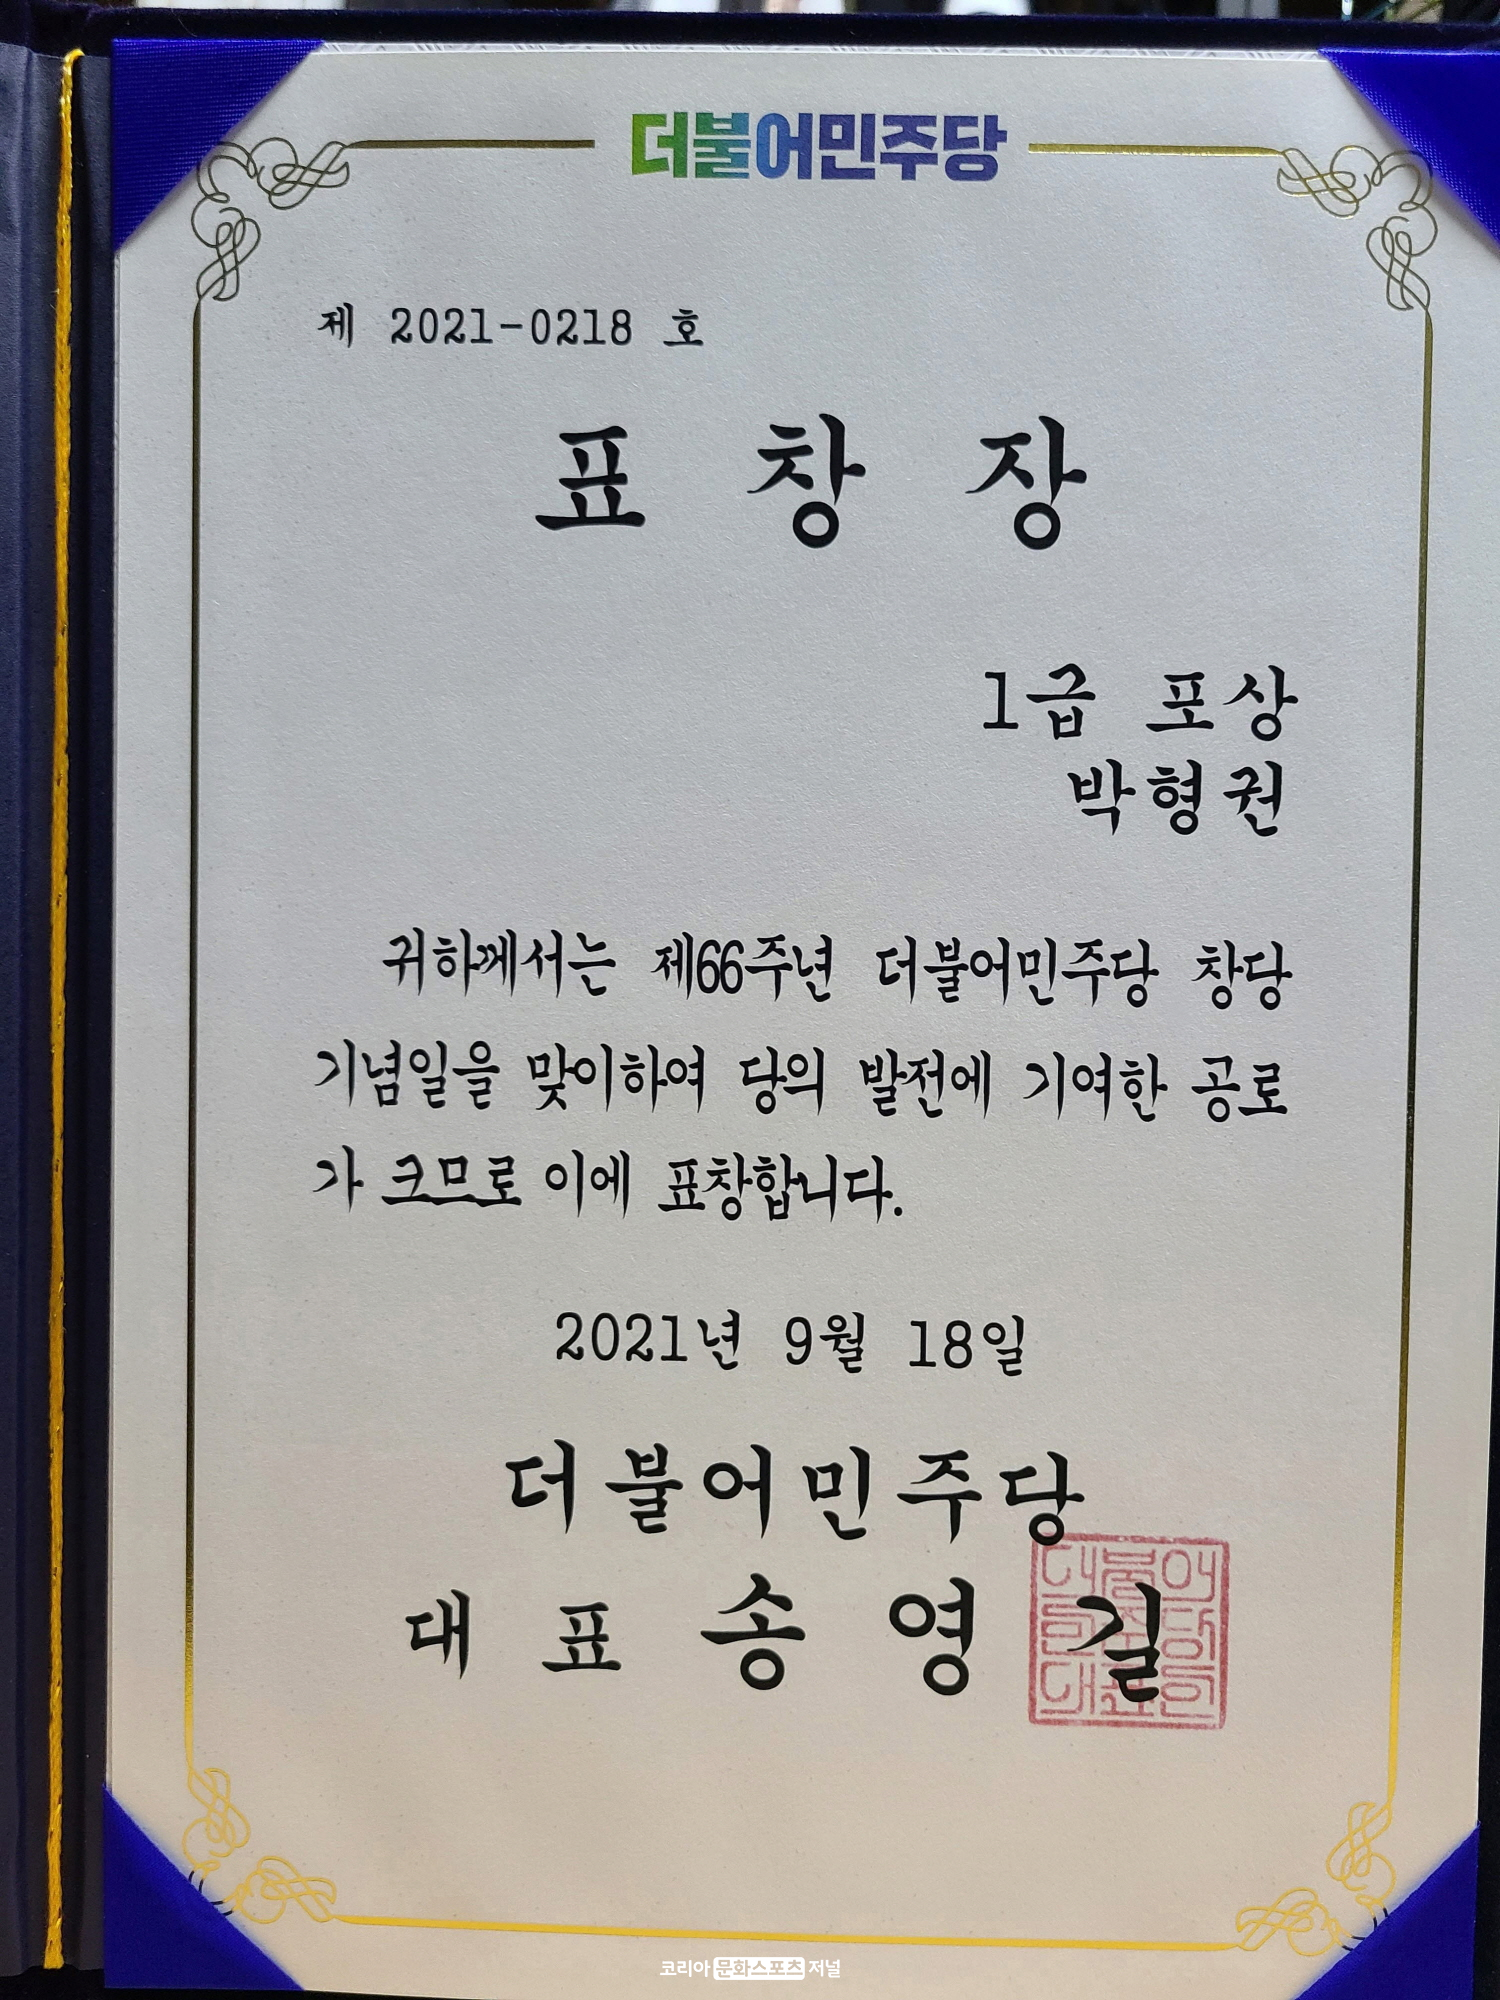 더불어민주당
제 2021-0218 호
표 창 장
1급 포상
박형권
귀하께서는 제66주년 더불어민주당 창당
기념일을 맞이하여 당의 발전에 기여한 공로
가 크므로 이에 표창합니다.
2021년 9월 18일
더불어민주당
대 표 송 영 길
코리아 문화스포츠 저널